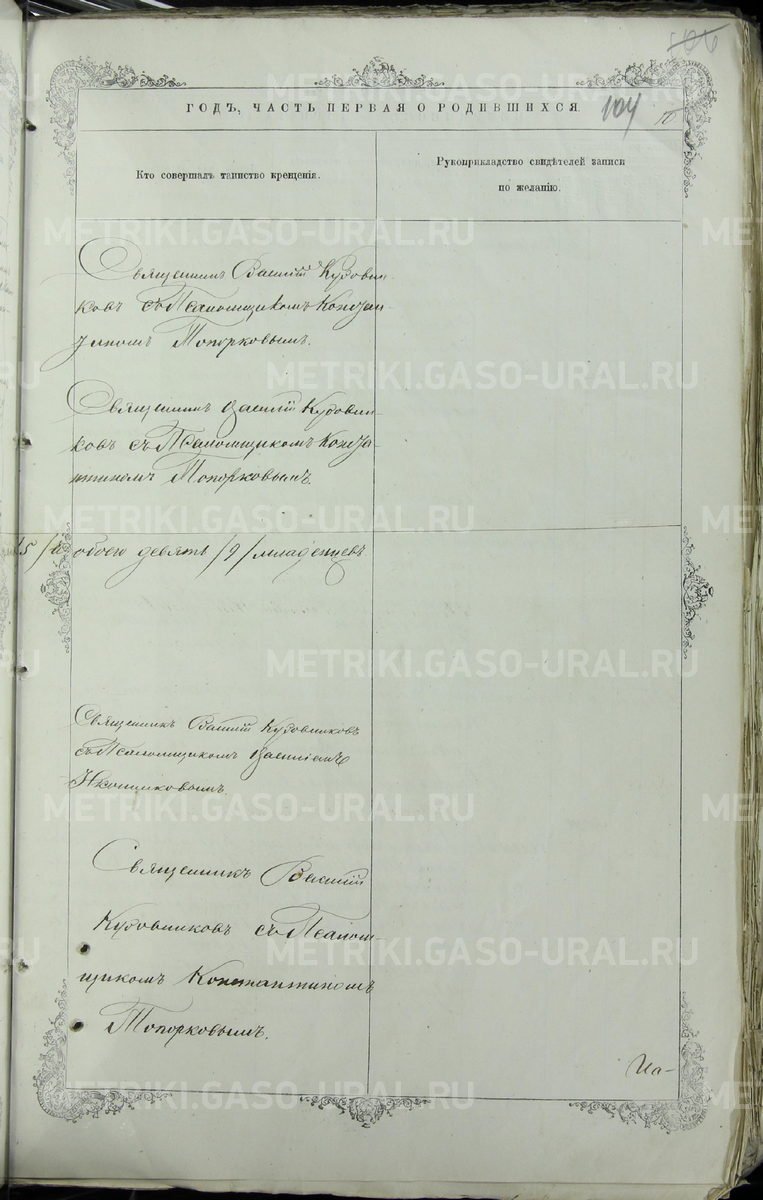 ГОДЪ, ЧАСТЬ ПЕРВАЯ О РОДИВШИХСЯ.
104
Кто совершалъ таинство крещенія.
Рукоприкладство свидѣтелей записи
по желанію.
Священникъ Василій Кудовин-
ковъ съ Псаломщикомъ Констан-
тиномъ Топорковымъ.
Священникъ Василій Кудовин-
ковъ съ Псаломщикомъ Конста-
нтиномъ Топорковымъ.
обоего девять /9/ младенцевъ.
Священникъ Василій Кудовинковъ
съ Псаломщикомъ Василіемъ
Иконниковымъ.
Священникъ Василій
Кудовинковъ съ Псалом-
щикомъ Константиномъ
Топорковымъ.
Ита-
METRIKI.GASO-URAL.RU